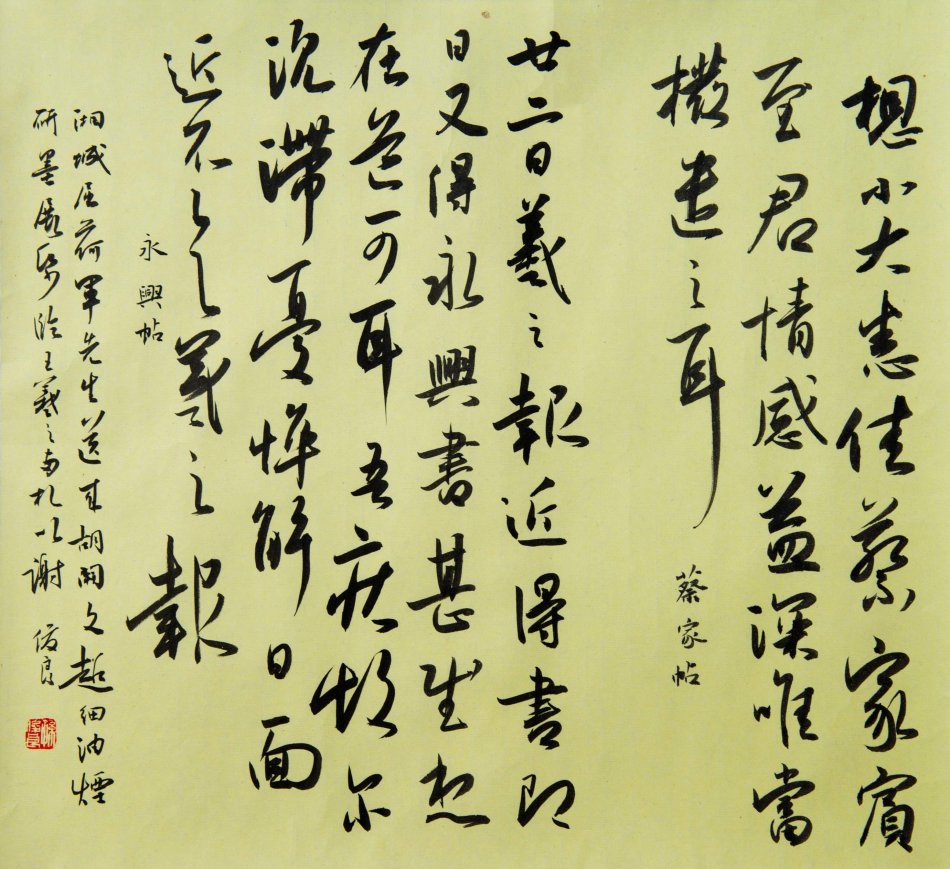 想小大悉佳蔡家賓
至君情感益深唯當
撥遣之耳
蔡家帖
廿二日羲之報近得書即
日又得永興書甚慰想
在道可耳吾疾故尔
沉滯憂悴解日面
近不具羲之報
永興帖
湖城居荷軍先生送來胡開文超細油煙
研墨展紙臨王羲之尺札以謝 俊良